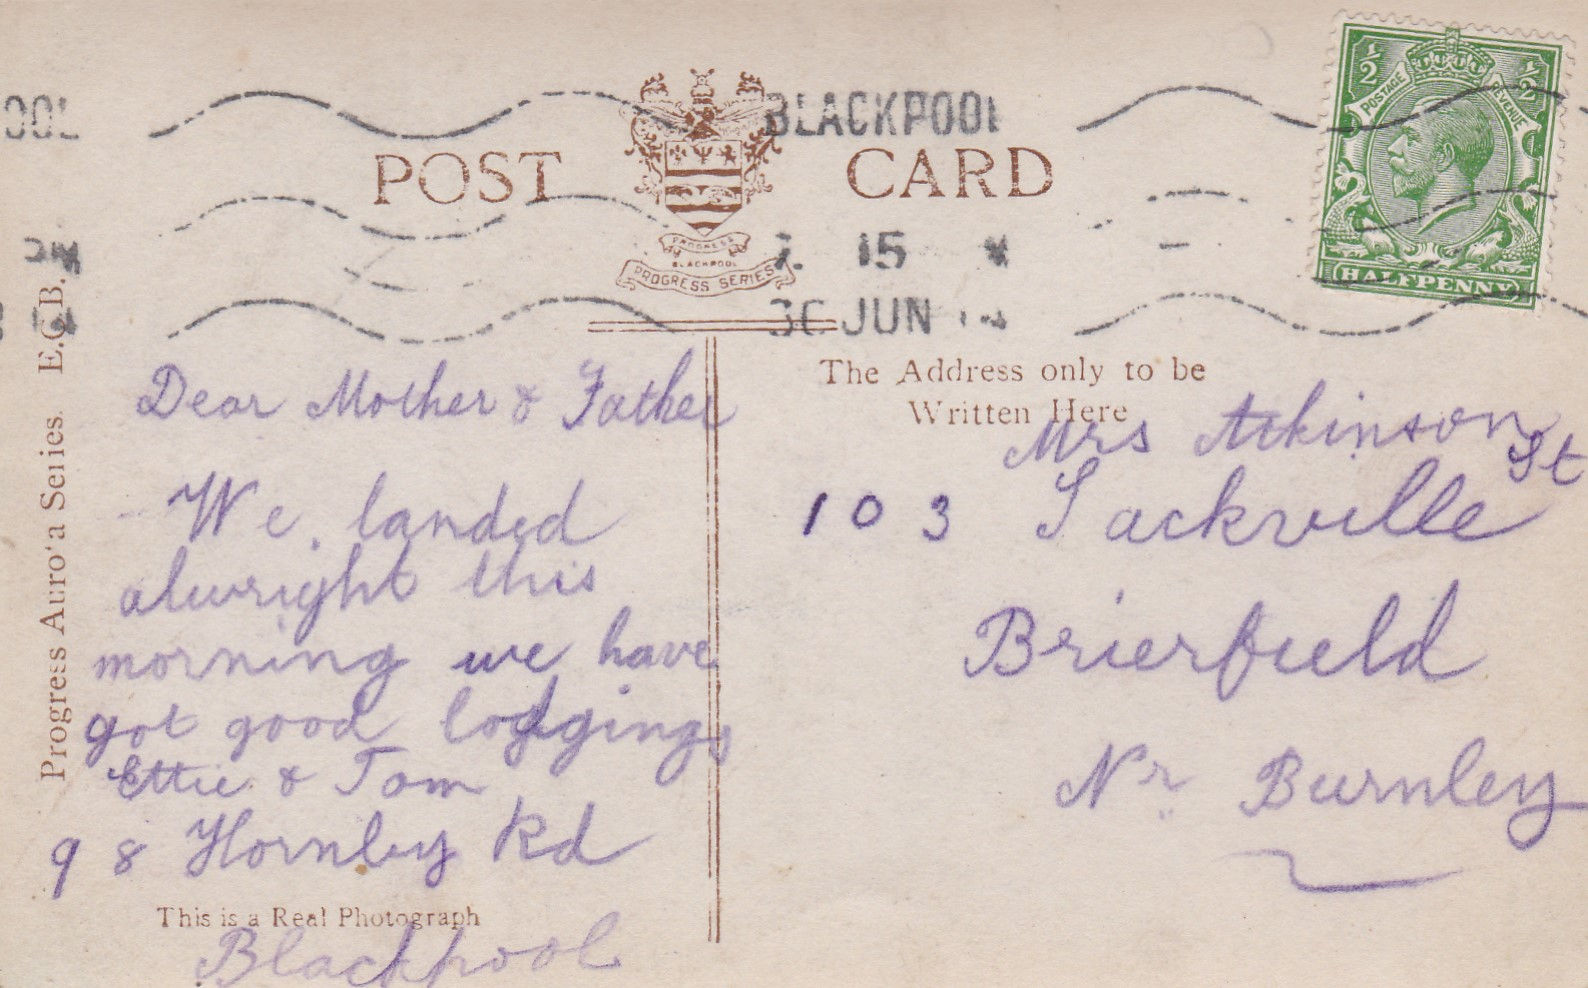 BLACKPOOL
POST CARD
PROGRESS
BLACKPOOL
PROGRESS SERIES
7. 15
JUN 14
POSTAGE REVENUE
½ ½
HALFPENNY
Progress Auro'a Series. E.C.B.
Dear Mother & Father
We. landed
alwright this
morning we have
got good lodgings
Ettie & Tom
98 Hornby Rd
Blackpool
This is a Real Photograph
The Address only to be
Written Here
Mrs Atkinson
103 Sackville St
Brierfield
Nr Burnley